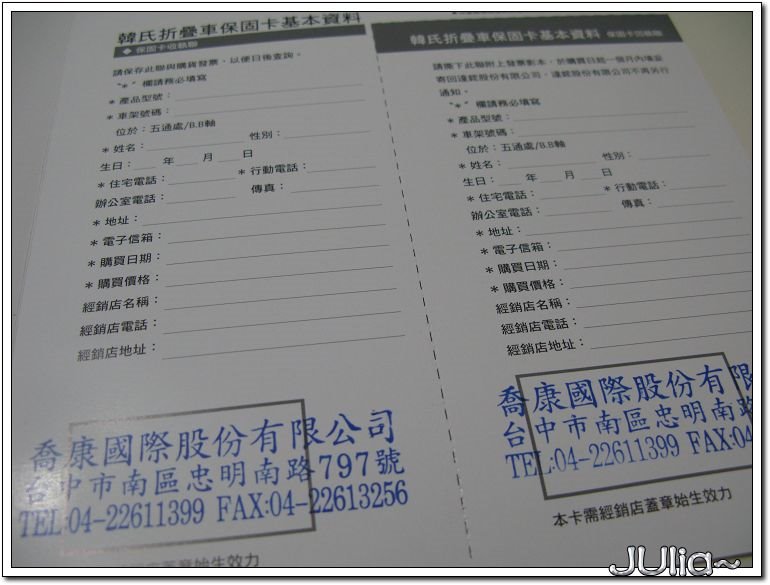 韓氏折疊車保固卡基本資料
◆ 保固卡收執聯
請保存此聯與購貨發票，以便日後查詢。
"＊"欄請務必填寫
＊產品型號：
＊車架號碼：
位於：五通處/B.B軸
＊姓名： 性別：
生日： 年 月 日
＊住宅電話： ＊行動電話：
辦公室電話： 傳真：
＊地址：
＊電子信箱：
＊購買日期：
＊購買價格：
經銷店名稱：
經銷店電話：
經銷店地址：
喬康國際股份有限公司
台中市南區忠明南路797號
TEL:04-22611399 FAX:04-22613256
經銷店蓋章始生效力
韓氏折疊車保固卡基本資料 保固卡回執聯
請撕下此聯附上發票影本，於購買日起一個月內填妥
寄回達銳股份有限公司，達銳股份有限公司不再另行
通知。
"＊"欄請務必填寫
＊產品型號：
＊車架號碼：
位於：五通處/B.B軸
＊姓名： 性別：
生日： 年 月 日
＊住宅電話： ＊行動電話：
辦公室電話： 傳真：
＊地址：
＊電子信箱：
＊購買日期：
＊購買價格：
經銷店名稱：
經銷店電話：
經銷店地址：
喬康國際股份有限
台中市南區忠明南路
TEL:04-22611399 FAX:04
本卡需經銷店蓋章始生效力
JUlia~